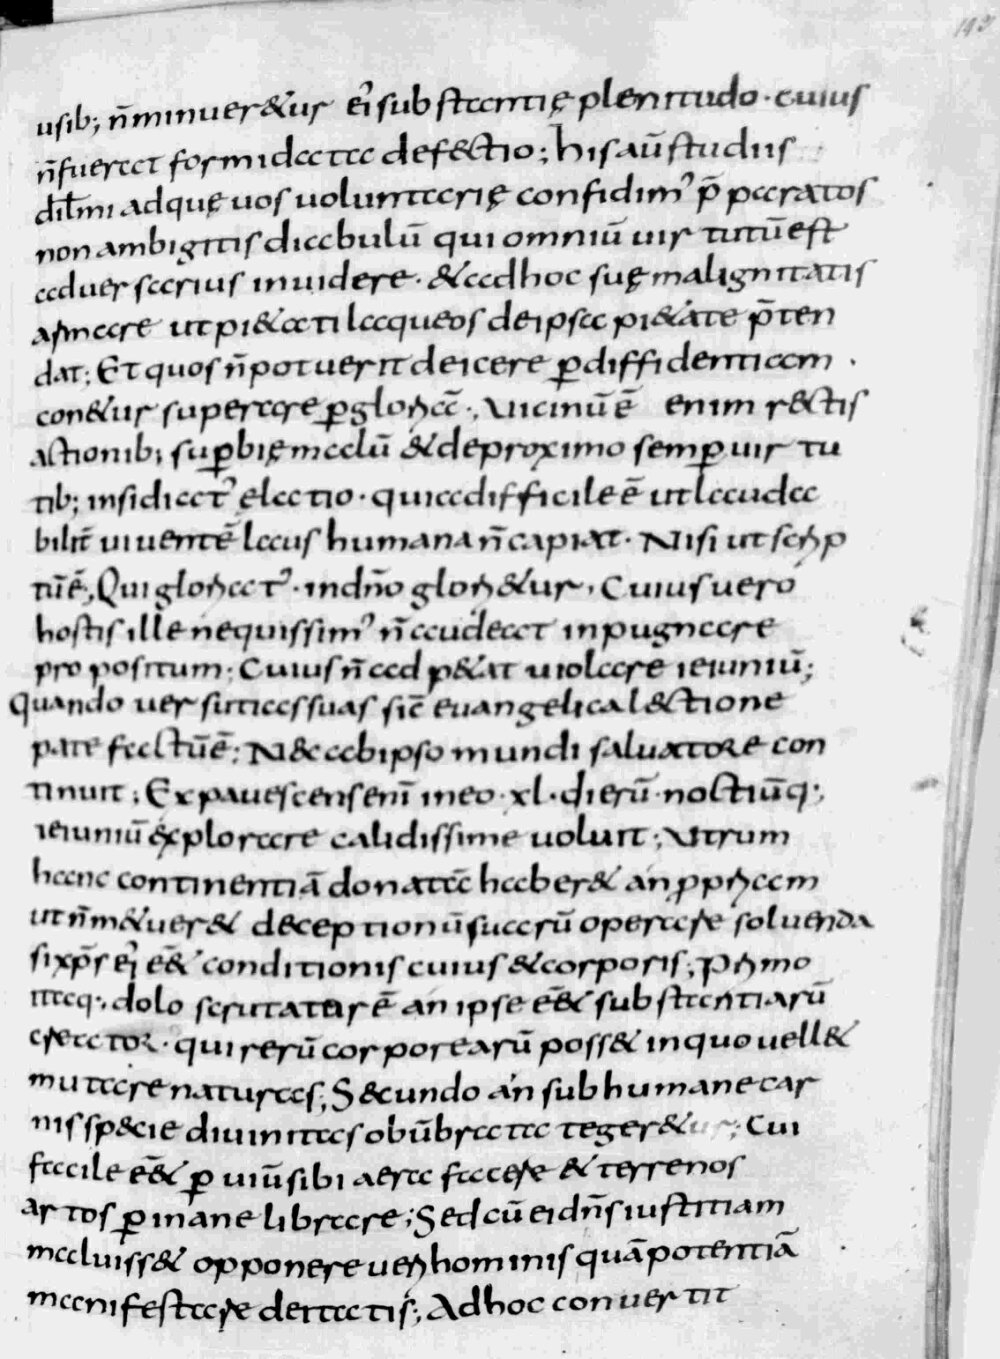 usib; n̄ minuer&ur ei᾽ substantię plenitudo · cuius
n̄ fuerat formidata def&ctio; his aū studiis
dil̄mi ad quę uos uoluntarię confidim᾽ p̄paratos
non ambigitis diabulū qui omniū uirtutū est
aduersarius inuidere · & ad hoc suę malignitatis
armare ut pi&ati laqueos de ipsa pi&ate p̄ten
dat; Et quos n̄ potuerit deicere ꝑ diffidentiam ·
con&ur superare ꝑ gloriā ·, Uicinū ē enim r&ctis
actionib; suꝑbię malū & de proximo semꝑ uirtu
tib; insidiat᾽ elatio · quia difficile ē ut lauda
bilit̄ uiuentē laus humana n̄ capiat · Nisi ut scrip
tū ē, Qui gloriat᾽ · in dn̄o glori&ur, Cuius uero
hostis ille nequissim᾽ n̄ audeat inpugnare
propositum; Cuius n̄ adp&at uiolare ieiuniū;
Quando uersutias suas sic̄ euangelica l&ctione
patefactū ē; N& ab ipso mundi saluatore con
tinuit; Expauescens eni̅ in eo · xl · dierū · noctiūq;
ieiuniū explorare calidissime uoluit; Utrum
hanc continentiā donatā haber& an ꝓpriam
ut n̄ m&uer& deceptionū suarū opera soluenda
si xp̄s ei᾽ e&̄ conditionis cuius & corporis; Primo
itaq; dolo scrutatur ē an ipse e&̄ substantiarū
creator · qui rerū corporearū poss& in quo uell&
mutare naturas; S&cundo an sub humane car
nis sp&cie diuinitas obūbrata teger&ur; Cui
facile e&̄ ꝑuiū sibi aera facere & terrenos
artos ꝑ inane librare; Sed cū ei dn̄s iustitiam
maluiss& opponere ueri hominis quā potentiā
manifestare deitatis; Ad hoc conuertit